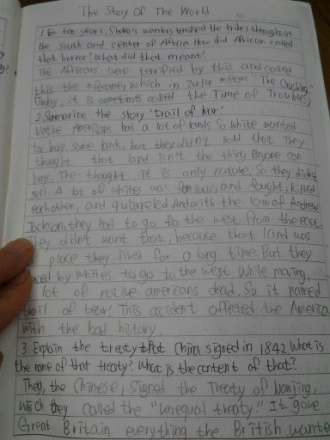 The Story Of The World
1. For ten years, Shaka's warriors terrified the tribes throughout
the south and center of Africa. How did African called
that horror? what did that meant?
The Africans were terrified by this and called
this the Mfecane, which in Zulu means "The Crushing".
Today, it is sometimes called the Time of Troubles,
2. Summarize the story 'trail of tear'
Native Americans has a lot of lands. So white wanted
to buy some lands, but they didn't sell that. They
thought that land isn't the thing anyone can
buy. The thought it is only nature. So they didn't
sell. A lot of whites was furious, and fought, killed
eachother, and quarreled. And with the law of Andrew
Jackson, they had to go to the west from the east.
They didn't want that, because that land was
place they lived for a long time. But they
by whites to go to the west. While moving,
lot of native americans dead. So it named
trail of tears. This accident affected the America
with the bad history.
3. Explain the treaty that China signed in 1842. What is
the name of that treaty? What is the content of that?
The Chinese, signed the Treaty of Nanjing,
which they called the "unequal treaty." It gave
Great Britain everything the British wanted